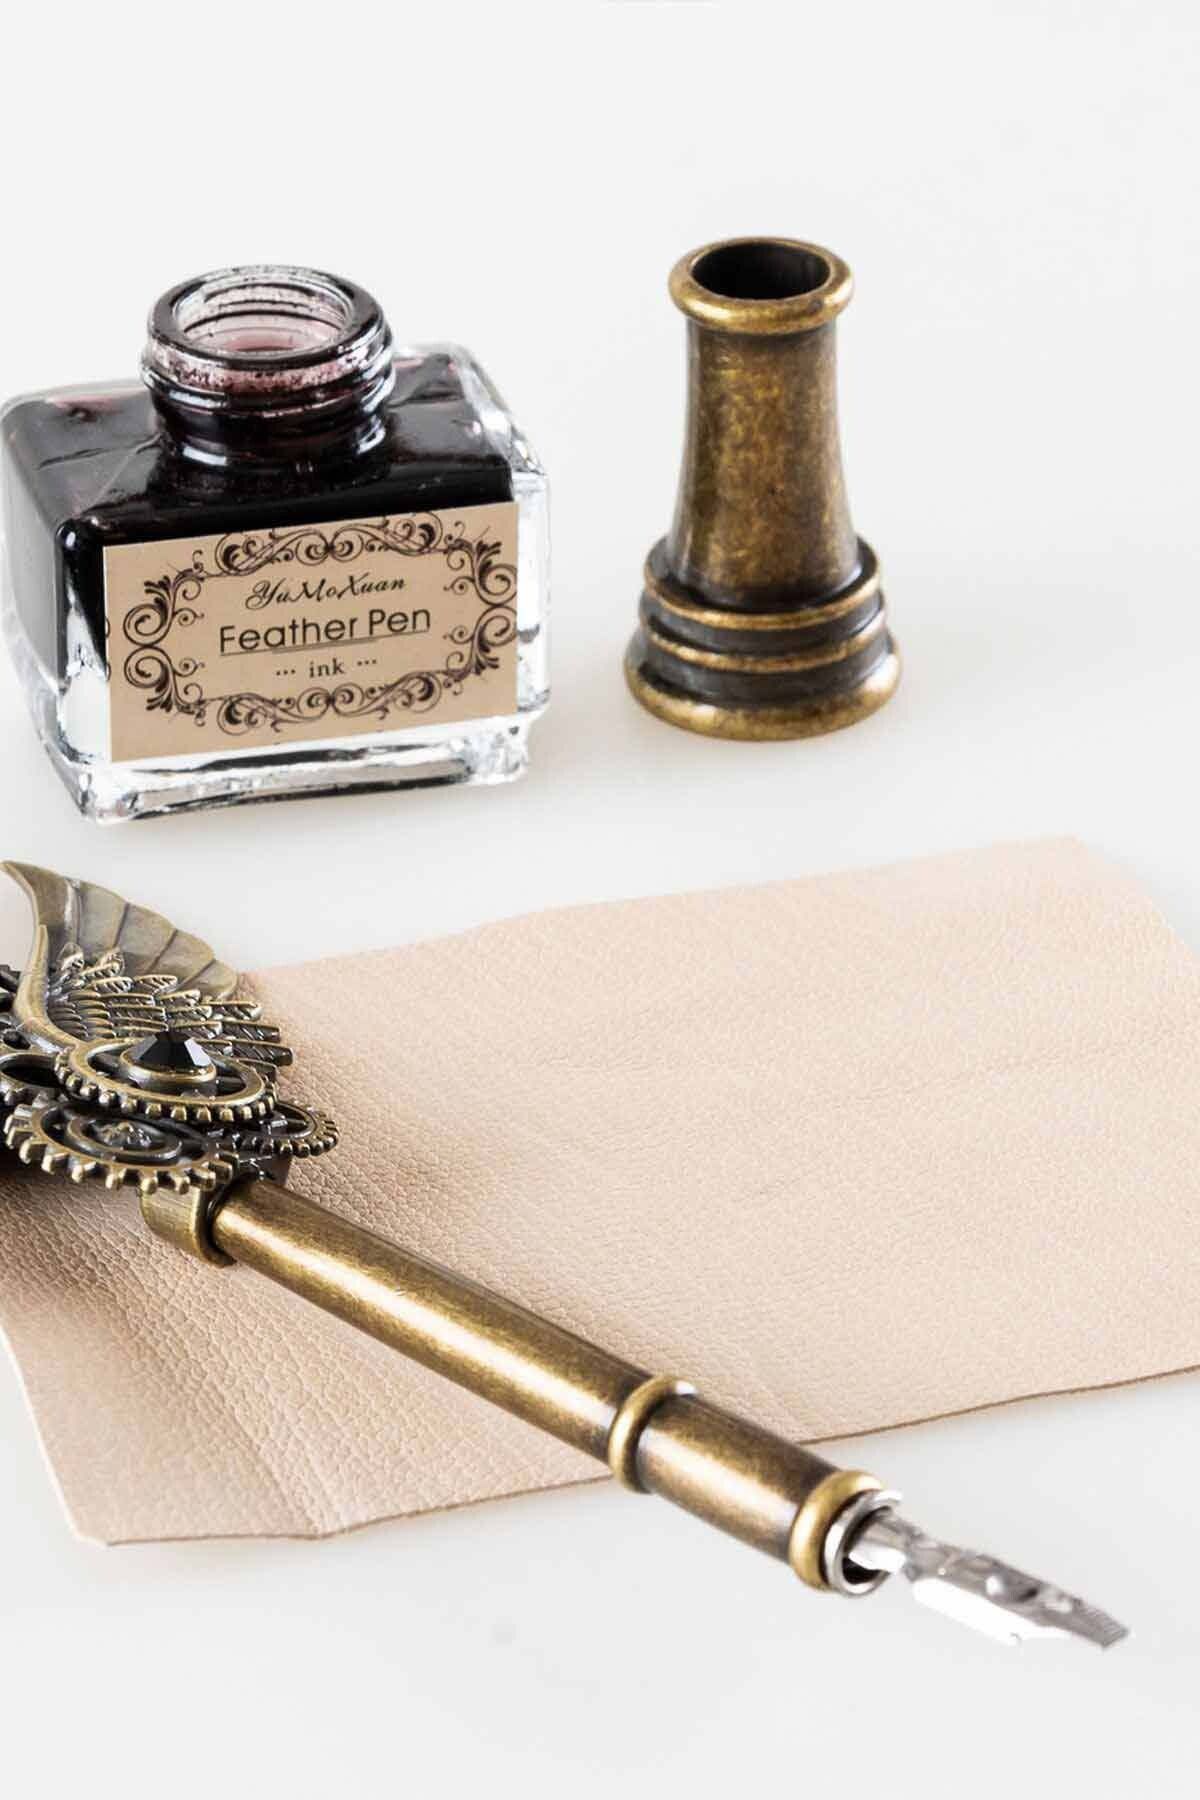 YuMoXuan
Feather Pen
··· ink ···